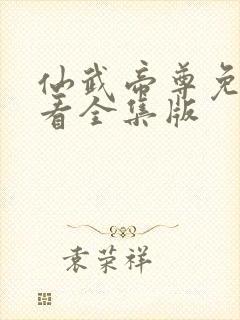 仙武帝尊免
看全集版
袁荣祥